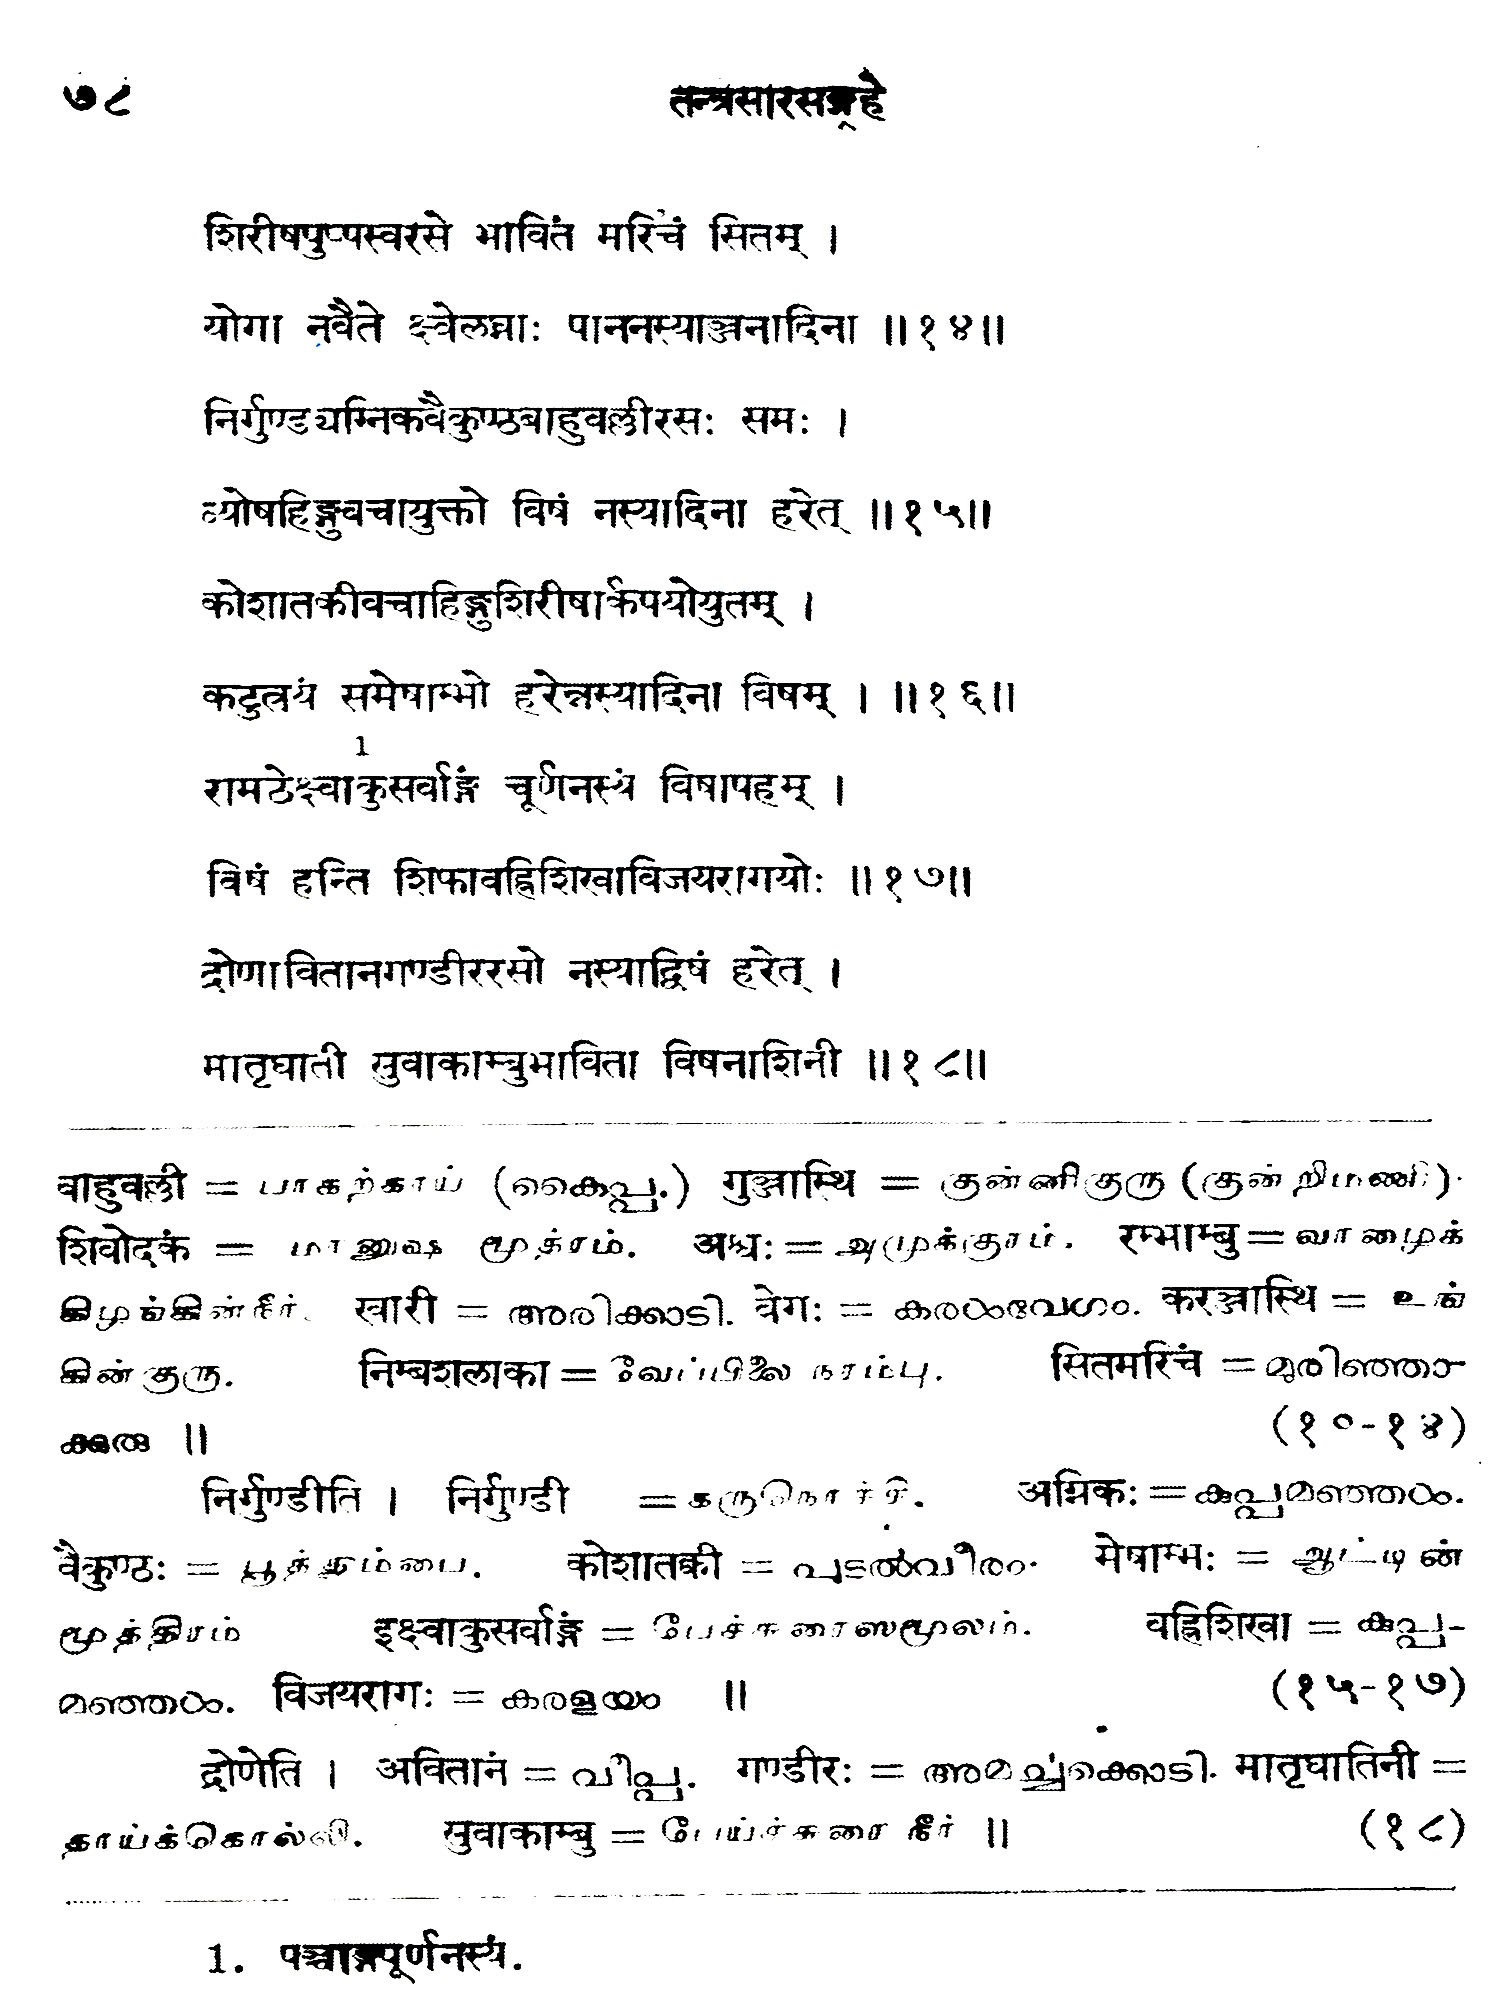 ७८ तन्त्रसारसङ्ग्रहे
शिरीषपुष्पस्वरसे भावितं मरिचं सितम् ।
योगा नवैते क्ष्वेलघ्नाः पाननस्याञ्जनादिना ॥१४॥
निर्गुण्ड्यग्निकवैकुण्ठबाहुवल्लीरसः समः ।
व्योषहिङ्गुवचायुक्तो विषं नस्यादिना हरेत् ॥१५॥
कोशातकीवचाहिङ्गुशिरीषार्कपयोयुतम् ।
कटुत्रयं समेषाम्भो हरेन्नस्यादिना विषम् । ॥१६॥
1
रामठेक्ष्वाकुसर्वाङ्गं चूर्णनस्यं विषापहम् ।
विषं हन्ति शिफावह्निशिखाविजयरागयोः ॥१७॥
द्रोणावितानगण्डीररसो नस्याद्विषं हरेत् ।
मातृघाती सुवाकाम्बुभाविता विषनाशिनी ॥१८॥
बाहुवल्ली = பாகற்காய் (കൈപ്പ.) गुञ्जास्थि = குன்னிகுரு (குன்றிமணி).
शिवोदकं = மானுஷ மூத்ரம். अश्वः = அமுக்குரம். रम्भाम्बु = வாழைக்
கிழங்கின்நீர். खारी = അരിക്കാടി. वेगः = കരൾവേഗം. करञ्जास्थि = உங்
கின்குரு. निम्बशलाका = வேப்பிலை நரம்பு. सितमरिचं = മുരിഞ്ഞാ-
ക്കുരു ॥ (१०-१४)
निर्गुण्डीति । निर्गुण्डी = கருநொச்சி. अग्निकः = കുപ്പമഞ്ഞൾ.
वैकुण्ठः = பூத்தும்பை. कोशातकी = പടൽവീരം. मेषाम्भः = ஆட்டின்
மூத்திரம் इक्ष्वाकुसर्वाङ्गं = பேச்சுரைஸமூலம். वह्निशिखा = കുപ്പ-
മഞ്ഞൾ. विजयरागः = കരളയം ॥ (१५-१७)
द्रोणेति । अवितानं = വിപ്പ. गण्डीरः = അമച്ചക്കൊടി. मातृघातिनी =
தாய்க்கொல்லி. सुवाकाम्बु = பேய்ச்சுரை நீர் ॥ (१८)
1. पञ्चाङ्गपूर्णनस्यं.